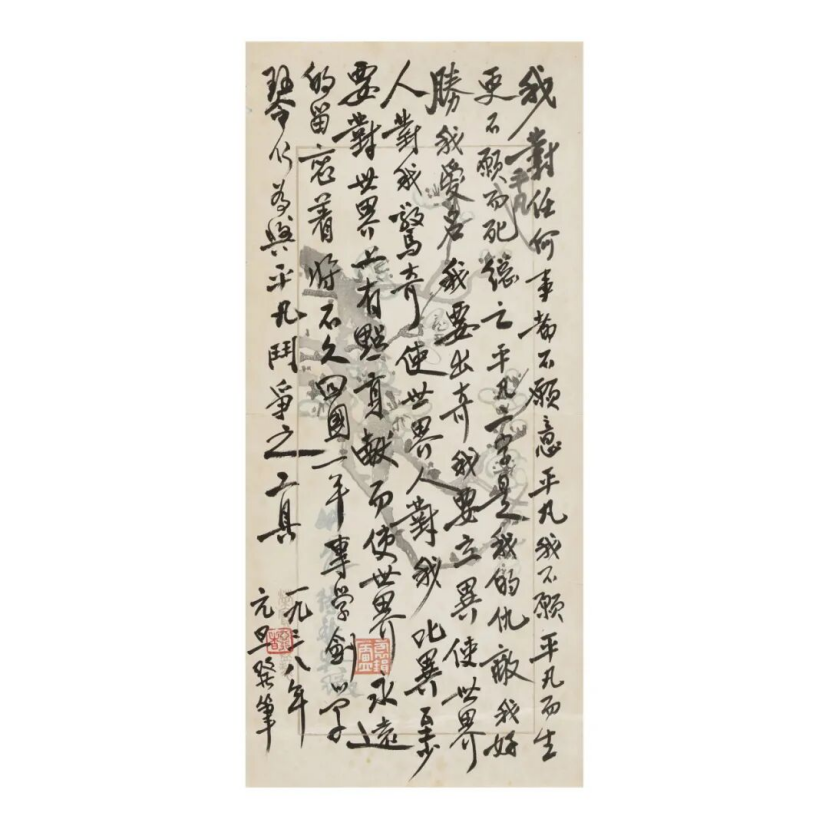 我對任何事都不願意平凡我不願平凡而生
更不願平凡而死總之平凡二字是我的仇敵我好
勝我愛名我要出奇我要立異使世界
人對我驚奇使世界人對我叱異至少
要對世界上有點貢獻而使世界永遠
的留戀着將不久回國一年專學劍以早
琴行為與平凡鬥爭之工具
一九三八年
元旦發筆